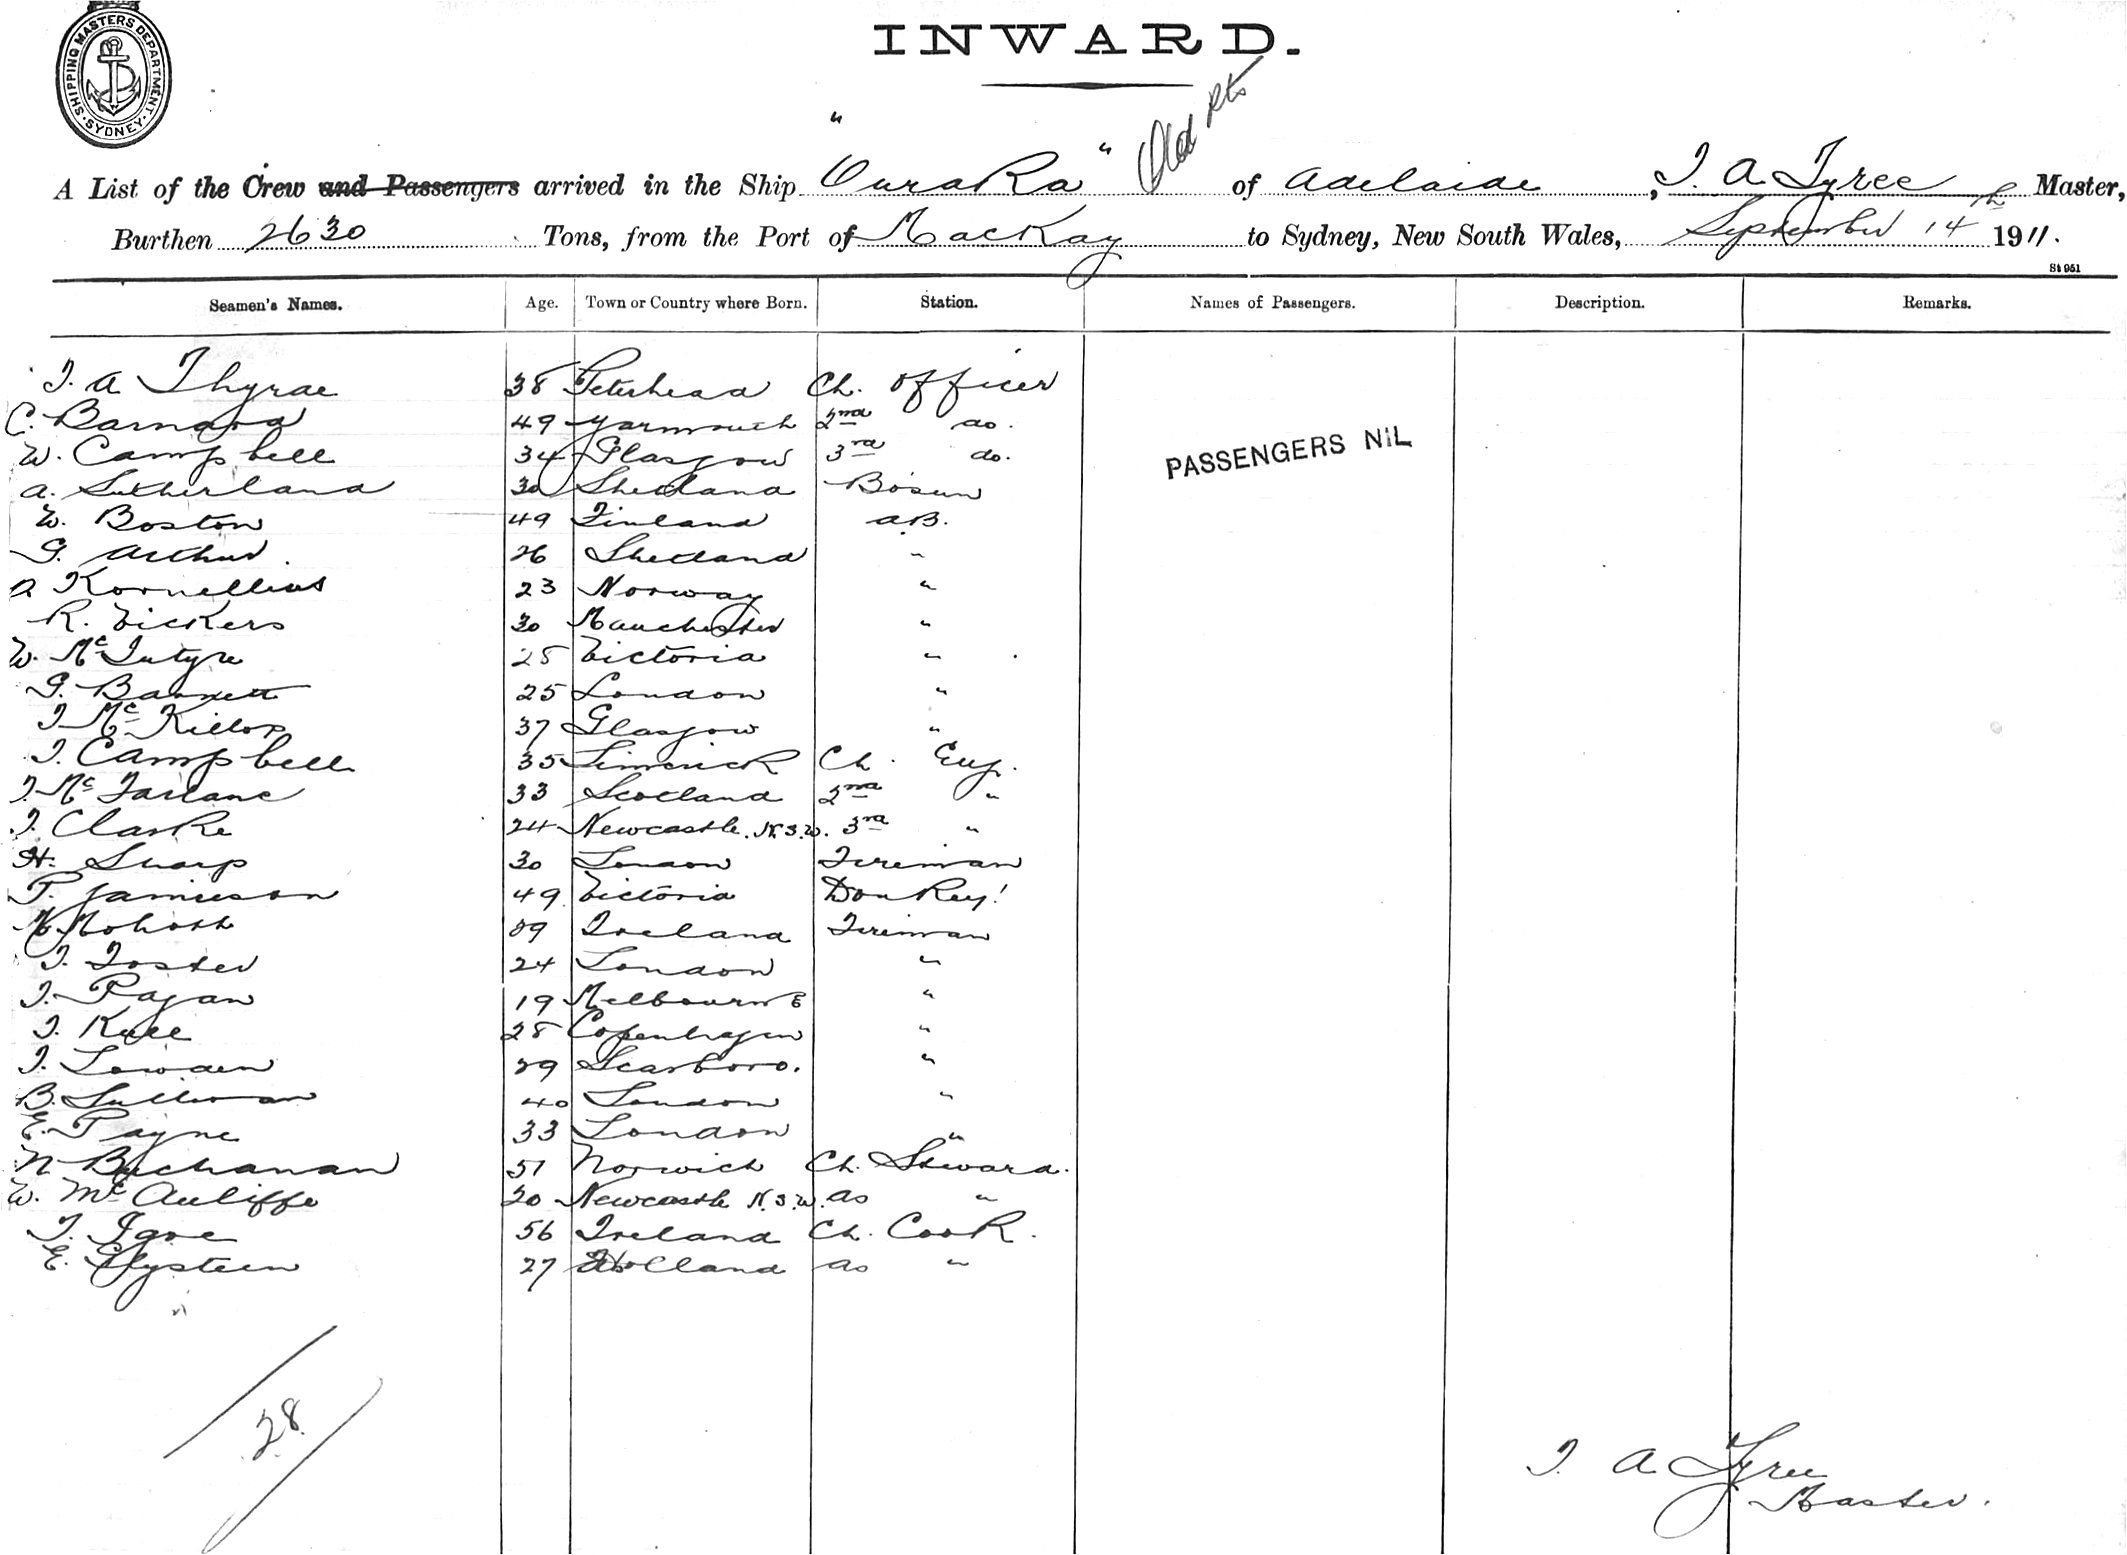 SHIPPING MASTERS DEPARTMENT SYDNEY
INWARD.
Old Rts
A List of the Crew and Passengers arrived in the Ship "OuraKa" of Adelaide, J. A. Tyree Master,
Burthen 2630 Tons, from the Port of MacKay to Sydney, New South Wales, September 14th 1911.
St 951
Seamen's Names. Age. Town or Country where Born. Station. Names of Passengers. Description. Remarks.
J. A Thyrae 38 Peterhead Ch. Officer
C. Barnard 49 Yarmouth 2nd do.
W. Campbell 34 Glasgow 3rd do.
PASSENGERS NIL
A. Sutherland 30 Shetland Bosun
W. Boston 49 Finland A.B.
G. Arthur 26 Shetland "
A Kornellius 23 Norway "
R. Vickers 30 Manchester "
W. McIntyre 28 Victoria "
G. Barnett 25 London "
J McKillop 37 Glasgow "
J. Campbell 35 Limerick Ch. Eng.
J. McFarlane 33 Scotland 2nd "
J. Clarke 24 Newcastle. N.S.W. 3rd "
H. Sharp 30 London Fireman
P. Jamieson 49 Victoria Donkey!
M 39 Ireland Fireman
J. Foster 24 London "
J. Pagan 19 Melbourne "
J. 28 Copenhagen "
J. Lowden 29 Scarboro. "
B. Sullivan 40 London "
E. Payne 33 London "
N Buchanan 51 Norwich Ch. Steward.
W. McAuliffe 20 Newcastle N.S.W. as "
J. Igoe 56 Ireland Ch. Cook.
E. 27 Holland as "
28
J. A Tyree
Master.